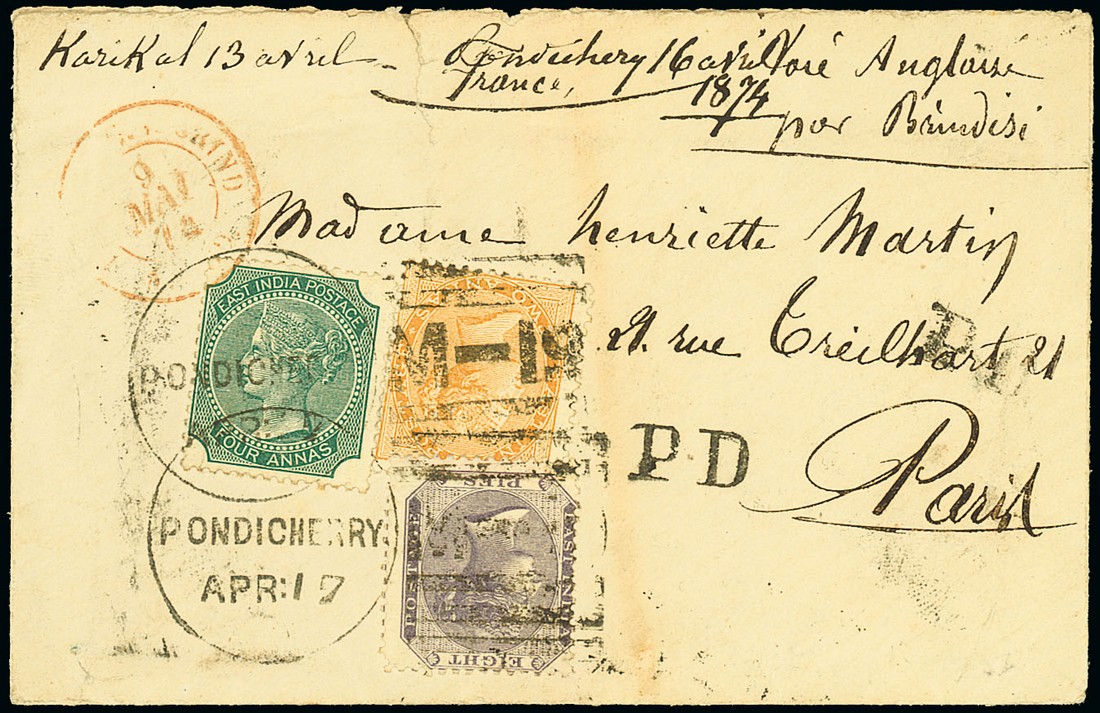 Karikal 13 avril - Pondichery 16 avril Voie Anglaise
France,
1874
par Brindisi
BRIND
9
MAI
74
Madame henriette Martin
21. rue Treilhart 21
Paris
EAST INDIA POSTAGE
FOUR ANNAS
M-19
PONDICHE
PD
PIES
POSTAGE
EAST INDIA
EIGHT
PONDICHERRY
APR:17